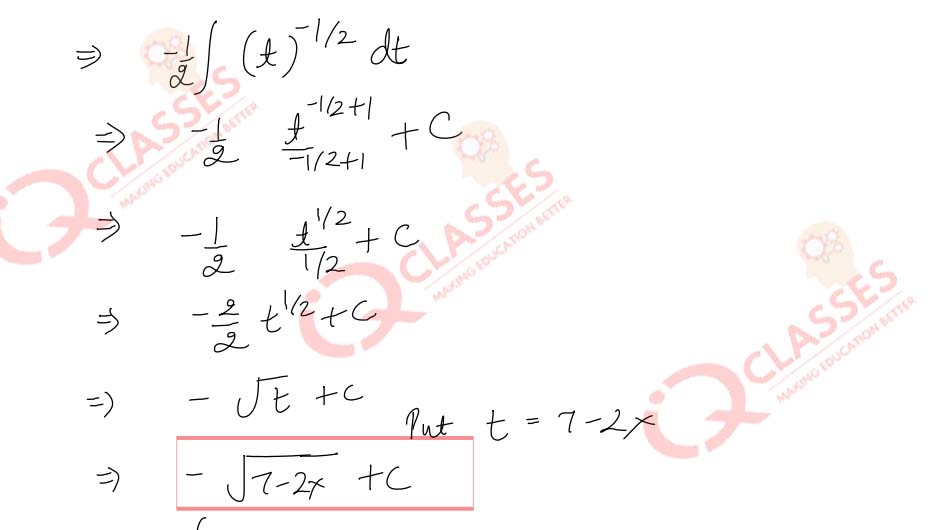 ⇒ -1/2 ∫ (t)^{-1/2} dt
⇒ -1/2 t^{-1/2+1}/(-1/2+1) + C
⇒ -1/2 t^{1/2}/(1/2) + C
⇒ -2/2 t^{1/2} + C
⇒ - √t + C
Put t = 7-2x
⇒ - √(7-2x) + C
QCLASSES
MAKING EDUCATION BETTER
QCLASSES
MAKING EDUCATION BETTER
QCLASSES
MAKING EDUCATION BETTER